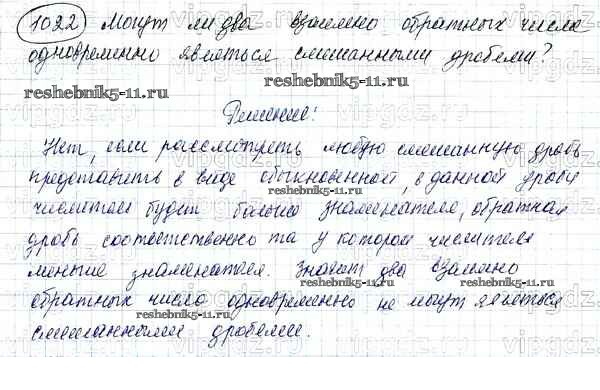 1022 Могут ли два взаимно обратных числа
одновременно являться смешанными дробями?
reshebnik5-11.ru
reshebnik5-11.ru
Решение:
Нет, если рассмотреть любую смешанную дробь
представить в виде обыкновенной, в данной дроби
reshebnik5-11.ru
числитель будет больше знаменателя, обратная
дробь соответственно та у которой числитель
меньше знаменателя. Значит два взаимно
обратных числа одновременно не могут являться
reshebnik5-11.ru
reshebnik5-11.ru
смешанными дробями.
vipgdz.ru